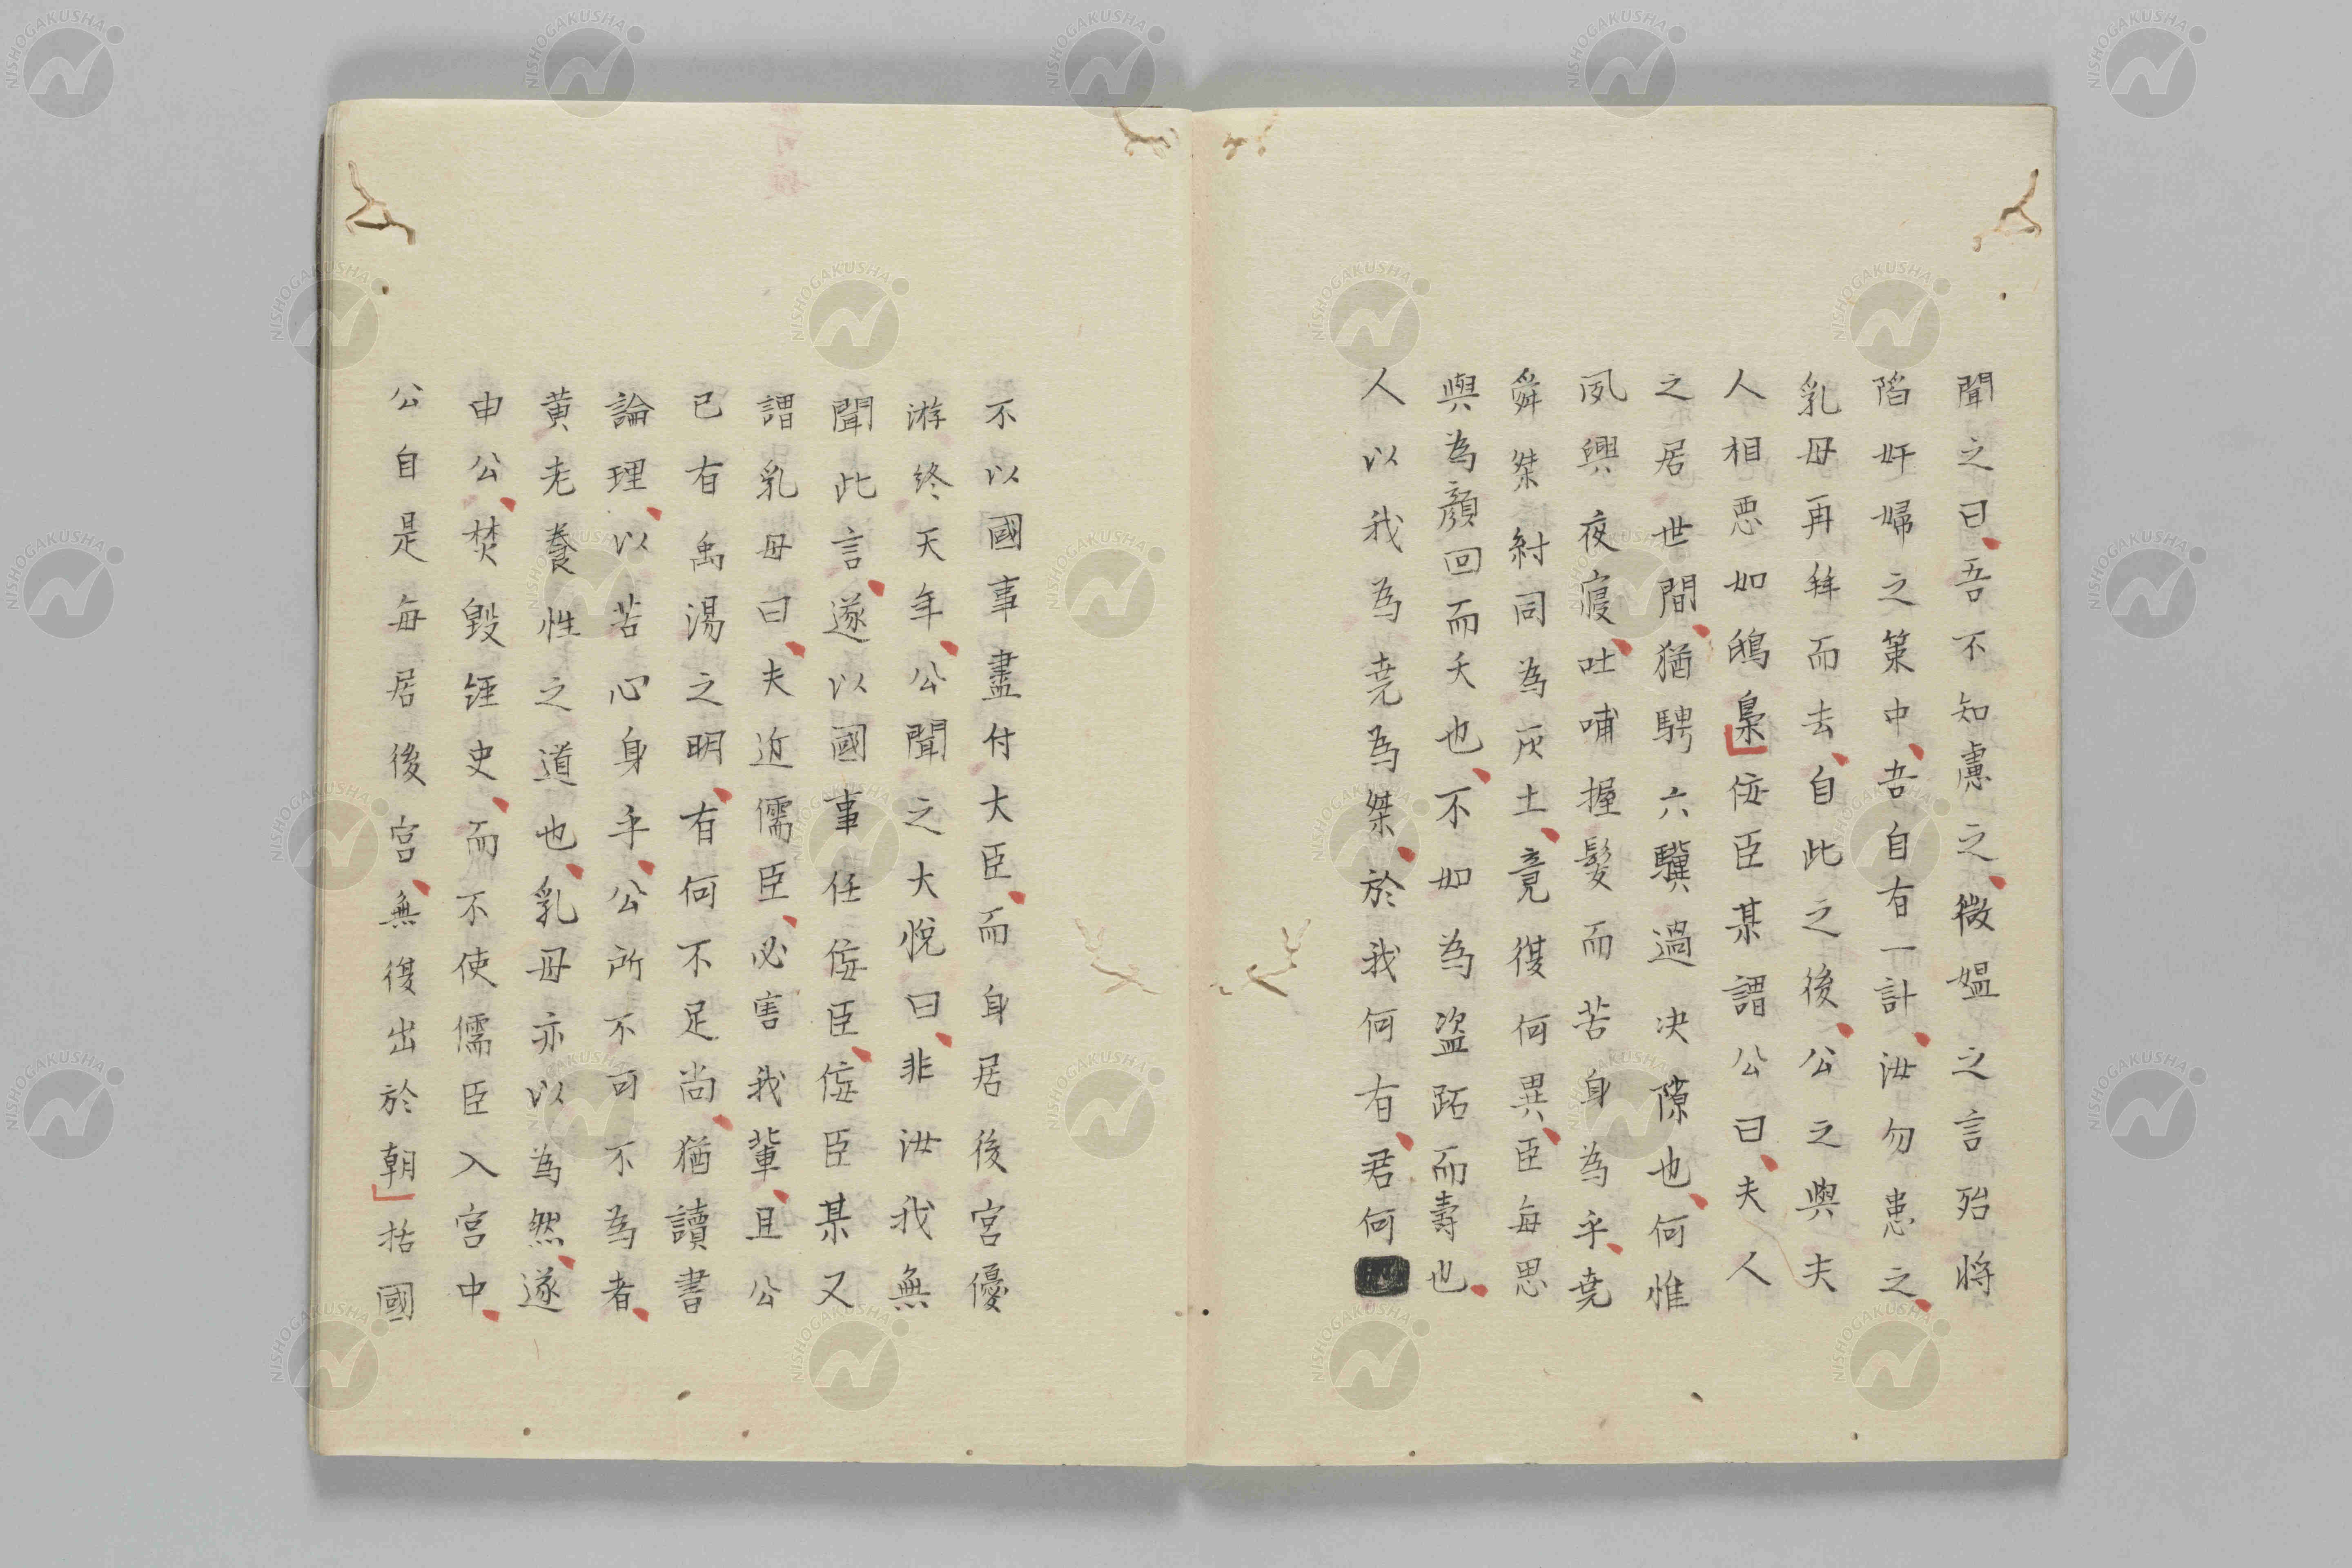 聞之曰、吾不知慮之、微媼之言殆将
陷奸婦之策中、吾自有一計、汝勿患之、
乳母再拜而去、自此之後、公之與夫
人相惡如鴟梟」侫臣某謂公曰、夫人
之居世間、猶騁六驥過决隙也、何惟
夙興夜寝、吐哺握髮而苦身為乎、堯
舜桀紂同為灰土、竟復何異、臣每思
與為顏回而夭也、不如為盜跖而壽也、
人以我為堯為桀、於我何有、君何
不以國事盡付大臣、而身居後宮優
游終天年、公聞之大悅曰、非汝我無
聞此言、遂以國事任侫臣、侫臣某又
謂乳母曰、夫近儒臣、必害我輩、且公
已有禹湯之明、有何不足尚、猶讀書
論理、以苦心身乎、公所不可不為者、
黄老養性之道也、乳母亦以為然、遂
申公、焚毀經史、而不使儒臣入宮中、
公自是每居後宮、無復出於朝」括國
NISHOGAKUSHA